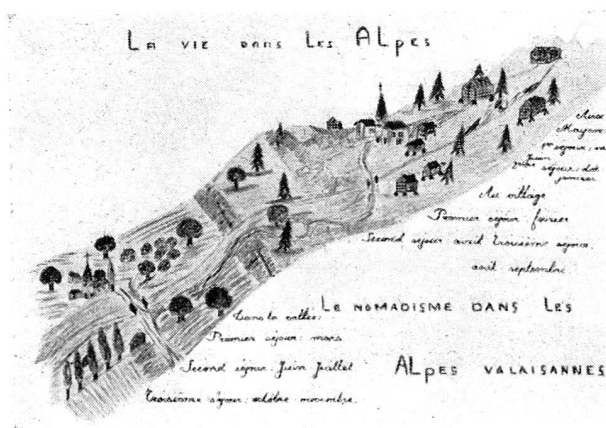 La vie dans les Alpes
Aux
Mayens
séjour
Juin
séjour
Au village
Premier séjour : février
Second séjour avril Troisième séjour.
août septembre
Le nomadisme dans les
Alpes valaisannes
Dans la vallée:
Premier séjour : mars
Second séjour : Juin Juillet
Troisième séjour : octobre novembre.